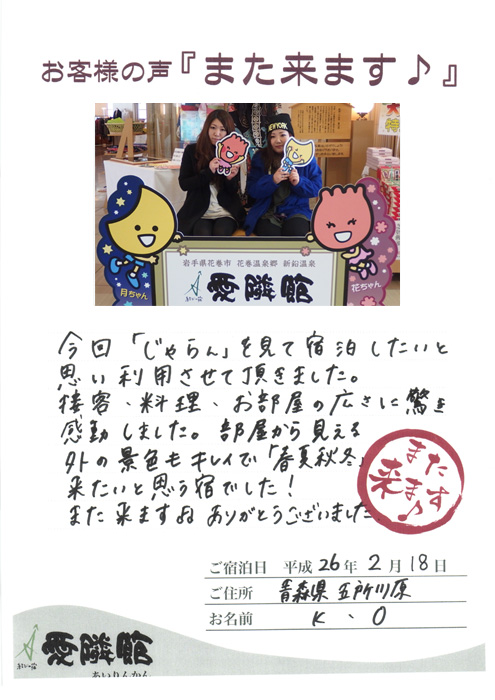 お客様の声『また来ます♪』
NEWYORK
岩手県花巻市 花巻温泉郷 新鉛温泉
愛隣館
月ちゃん
花ちゃん
今回「じゃらん」を見て宿泊したいと
思い利用させて頂きました。
接客、料理、お部屋の広さに驚き
感動しました。部屋から見える
外の景色もキレイで「春夏秋冬」
来たいと思う宿でした！
また来ますね ありがとうございました
また
来ます♪
ご宿泊日 平成26年2月18日
ご住所 青森県五所川原
お名前 K、O
愛隣館
あいりんかん